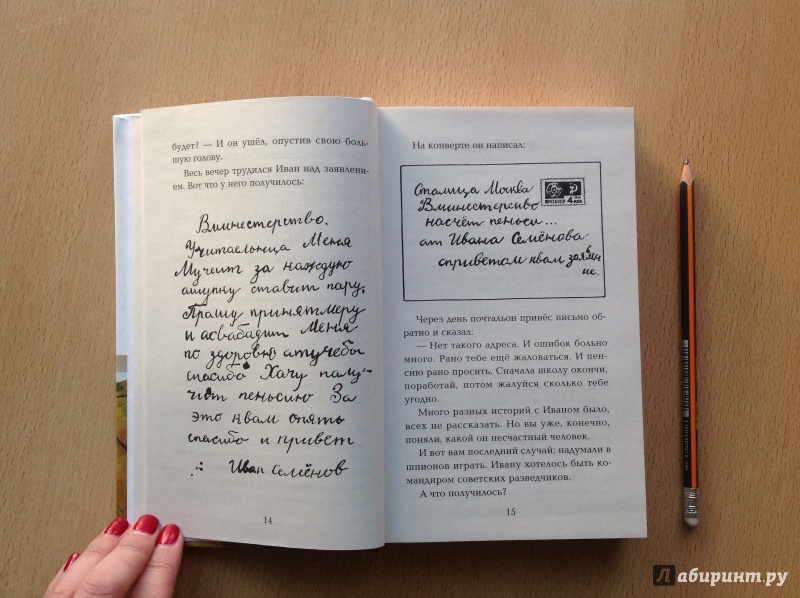 будет? — И он ушёл, опустив свою боль-
шую голову.
Весь вечер трудился Иван над заявлени-
ем. Вот что у него получилось:
Вминестерство.
Учитаельница Меня
Мучеит за наждую
ашупку ставит пару.
Прашу принятмеру
и асвабадит Меня
по здоровю атучебы
спасибо Хачу палу-
чит пеньсию За
это квам опять
спастбо и привет
Иван семёнов
14
На конверте он написал:
Сталица Москва
Вминестерство
насчёт пеньси...
ат Ивана Семёнова
сприветам квам заявлен
ие.
ПОЧТА СССР 4 коп
Через день почтальон принёс письмо об-
ратно и сказал:
— Нет такого адреса. И ошибок больно
много. Рано тебе ещё жаловаться. И пен-
сию рано просить. Сначала школу окончи,
поработай, потом жалуйся сколько тебе
угодно.
Много разных историй с Иваном было,
всех не рассказать. Но вы уже, конечно,
поняли, какой он несчастный человек.
И вот вам последний случай: надумали в
шпионов играть. Ивану хотелось быть ко-
мандиром советских разведчиков.
А что получилось?
15
Лабиринт.ру